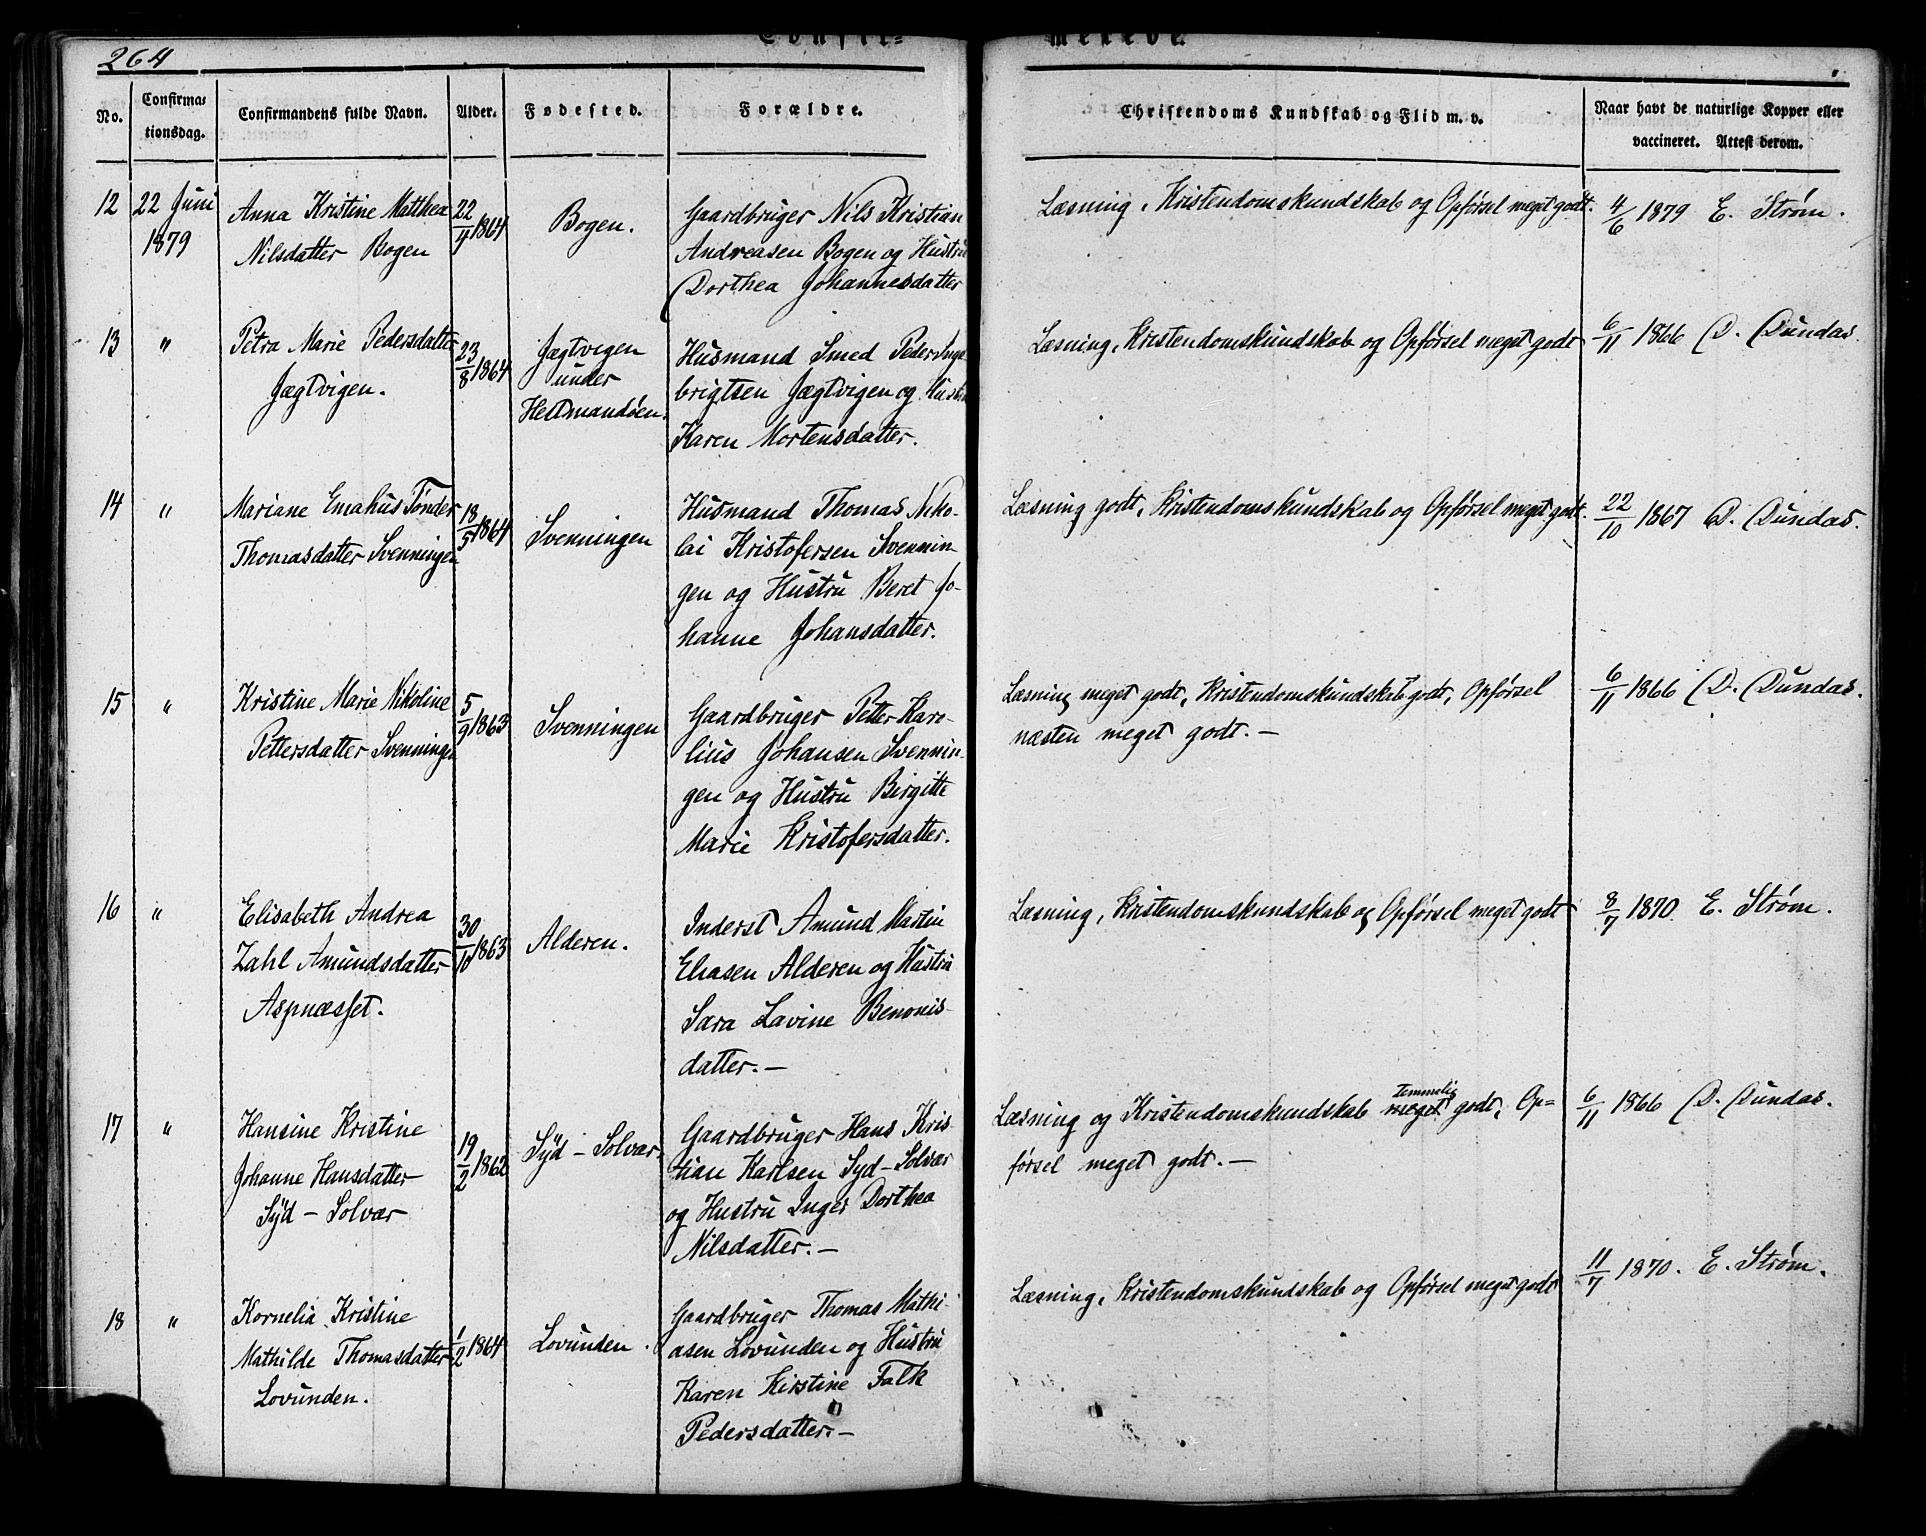 264
Confir- merede.
No.
Confirma-
tionsdag.
Confirmandens fulde Navn.
Alder.
Fødested.
Forældre.
Christendoms Kundskab og Flid m. v.
Naar havt de naturlige Kopper eller
vaccineret. Attest derom.
12
22 Juni
1879
Anna Kristine Matthea
Nilsdatter Bogen
22/4 1864
Bogen.
Gaardbruger Nils Kristian
Andreasen Bogen og Hustru
Dorthea Johannesdatter
Læsning, Kristendomskundskab og Opførsel meget godt.
4/6 1879 E. Strøm.
13
"
Petra Marie Pedersdatter
Jægtvigen.
23/8 1864
Jægtvigen
under
Hestmandøen.
Husmand Smed Peder Inge
brigtsen Jægtvigen og Hustru
Karen Mortensdatter.
Læsning, Kristendomskundskab og Opførsel meget godt
6/11 1866 D. Dundas.
14
"
Mariane Emahus Tønder
Thomasdatter Svenningen
18/5 1864
Svenningen
Husmand Thomas Niko-
lai Kristofersen Svennin-
gen og Hustru Beret Jo-
hanne Johansdatter.
Læsning godt, Kristendomskundskab og Opførsel meget godt.
22/10 1867 D. Dundas.
15
"
Kristine Marie Nikoline
Pettersdatter Svenningen
5/9 1863
Svenningen
Gaardbruger Petter Karo-
lius Johansen Svennin-
gen og Hustru Birgitte
Marie Kristofersdatter.
Læsning meget godt, Kristendomskundskab godt, Opførsel
næsten meget godt. —
6/11 1866 D. Dundas.
16
"
Elisabeth Andrea
Zahl Amundsdatter
Aspnæsset.
30/10 1863
Alderen.
Inderst Amund Martin
Eliasen Alderen og Hustru
Sara Lavine Benonis-
datter. —
Læsning, Kristendomskundskab og Opførsel meget godt
8/7 1870 E. Strøm.
17
"
Hansine Kristine
Johanne Hansdatter
Syd - Solvær
19/2 1862
Syd - Solvær.
Gaardbruger Hans Kris-
tian Karlsen Syd-Solvær
og Hustru Inger Dorthea
Nilsdatter. —
temmelig
Læsning og Kristendomskundskab meget godt, Op=
førsel meget godt. —
6/11 1866 D. Dundas.
18
"
Kornelia Kristine
Mathilde Thomasdatter
Lovunden.
1/2 1864
Lovunden.
Gaardbruger Thomas Mathi-
asen Lovunden og Hustru
Karen Kirstine Falk
Pedersdatter. —
Læsning, Kristendomskundskab og Opførsel meget godt
11/7 1870. E. Strøm.